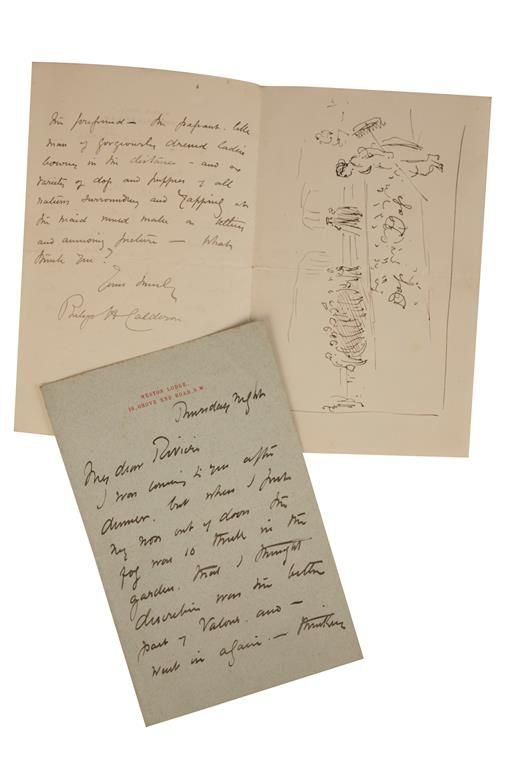 the foreground — the pageant like
man of gorgeously dressed ladies
bowing in the distance — and a
variety of dogs and puppies of all
nations surrounding and yapping at
the maid must make a telling
and amusing picture — What
think you?
Yours sincerely
Philip H Calderon
WESTON LODGE,
16, GROVE END ROAD, N.W.
Thursday night
My dear Riviere
I was coming to you after
dinner. but when I put
my nose out of doors the
fog was so thick in the
garden. that I thought
discretion was the better
part of Valour. and —
went in again. — thinking